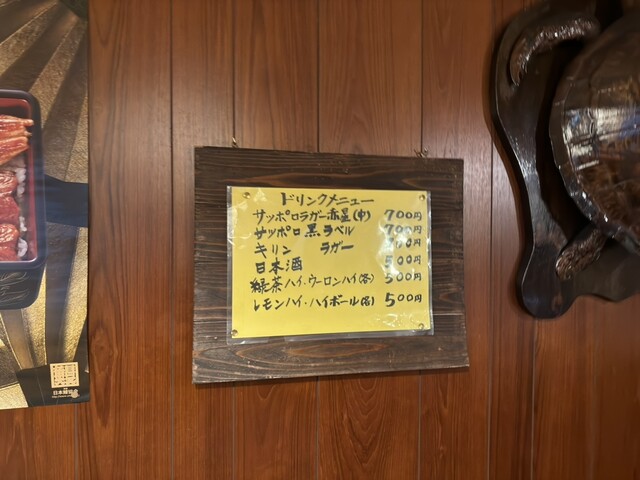 ドリンクメニュー
サッポロラガー赤星(中) 700円
サッポロ黒ラベル 700円
キリン ラガー 00円
日本酒 500円
緑茶ハイ・ウーロンハイ(各) 500円
レモンハイ・ハイボール(各) 500円